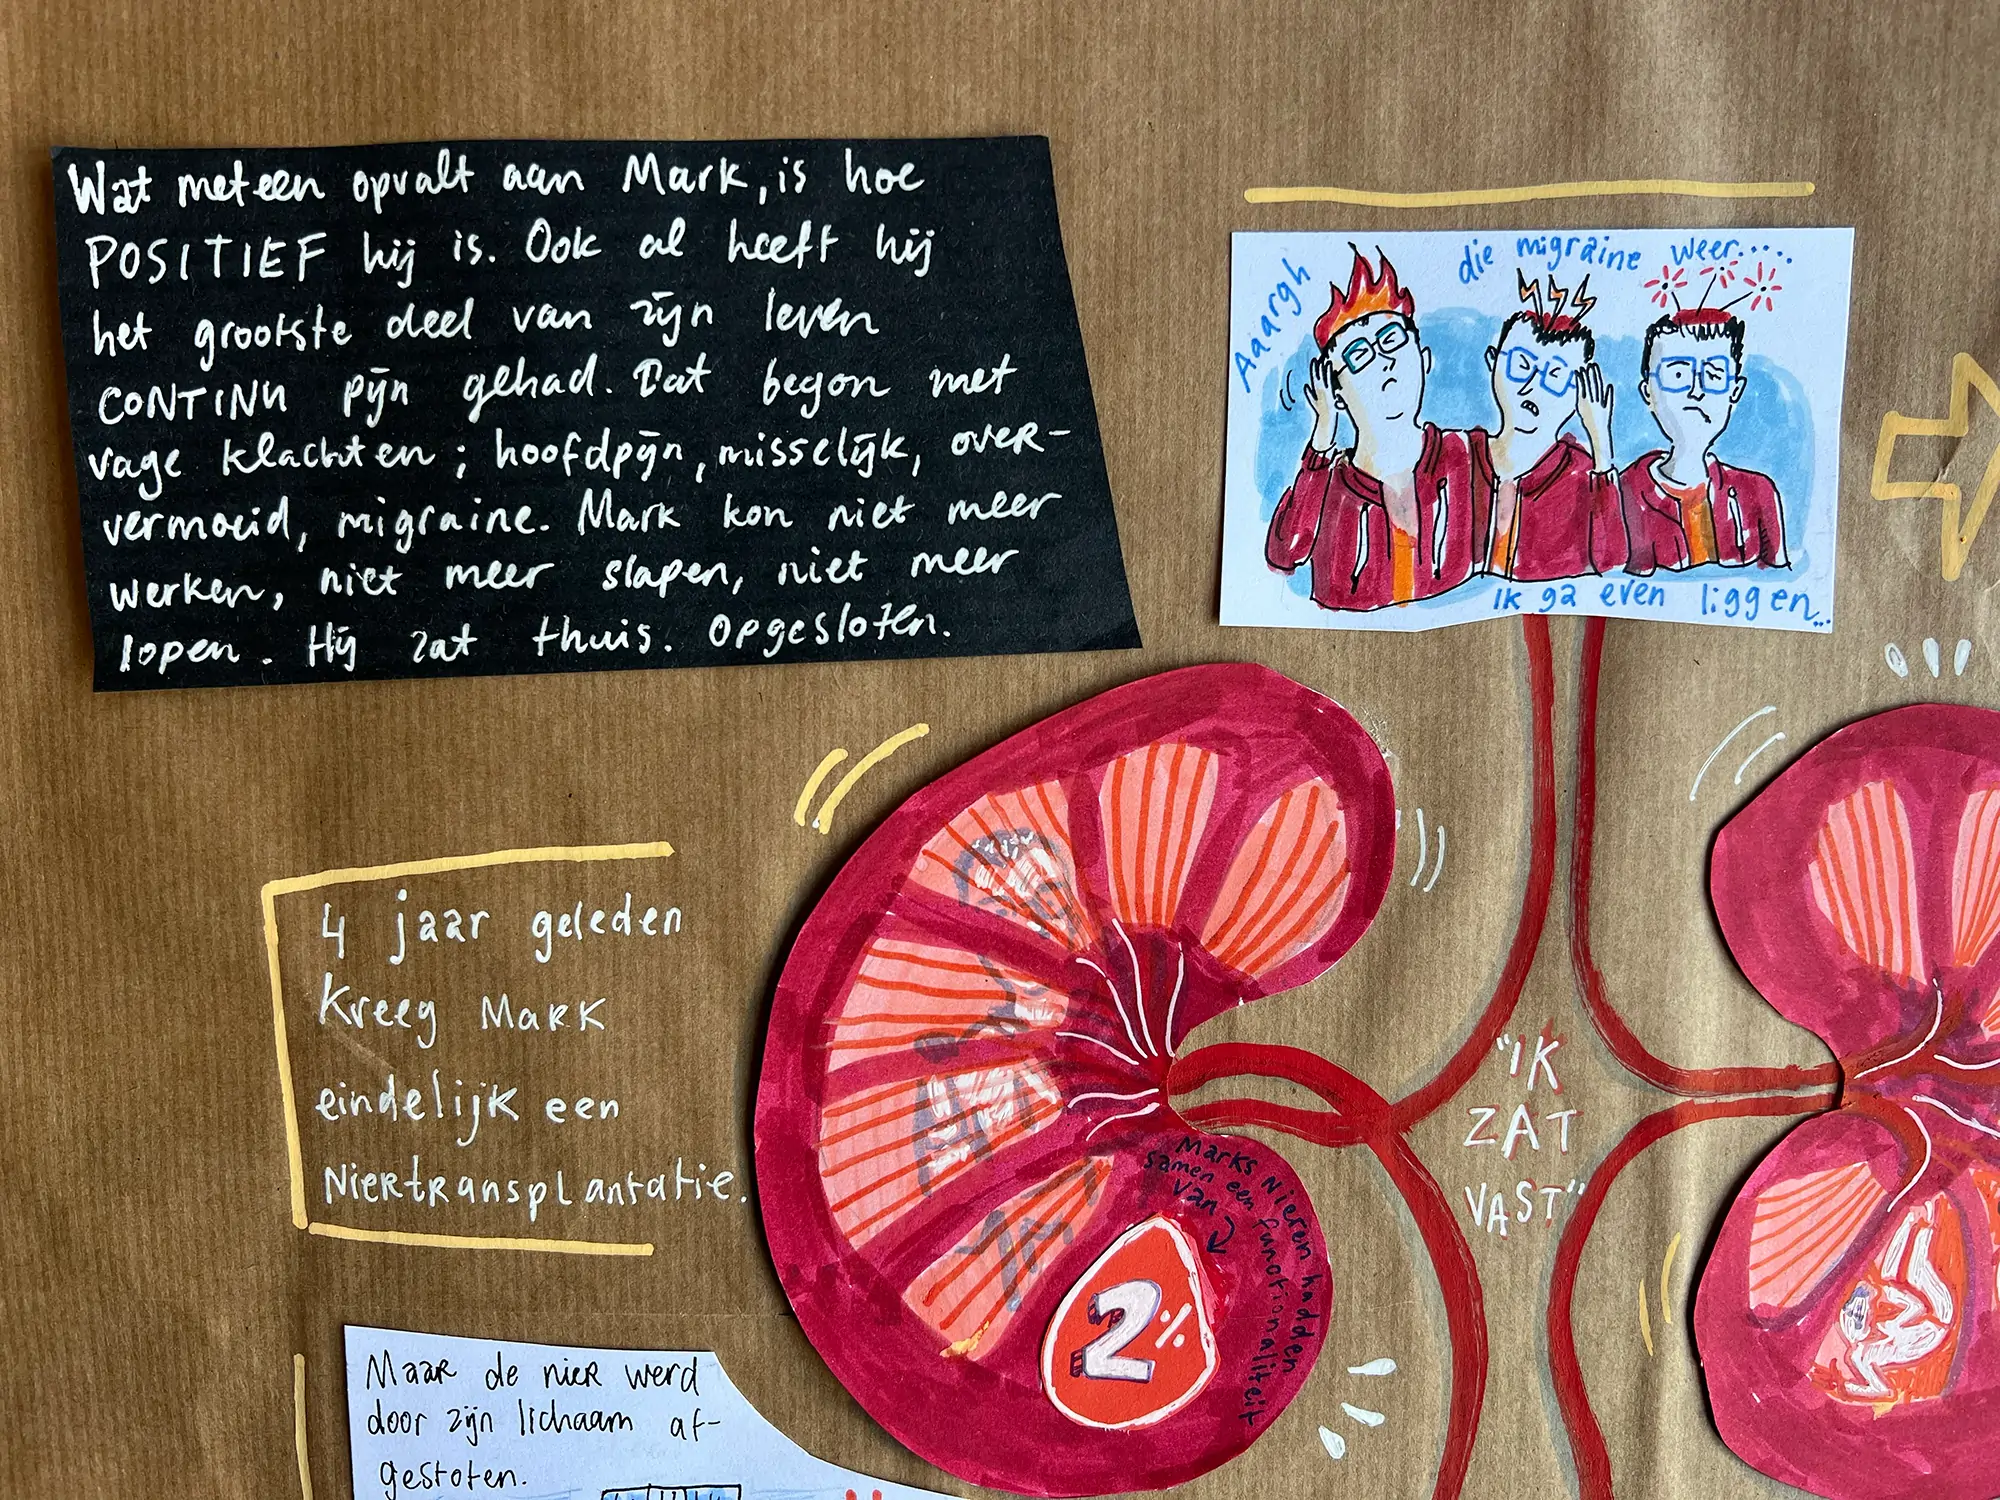 Wat meteen opvalt aan Mark, is hoe
POSITIEF hij is. Ook al heeft hij
het grootste deel van zijn leven
CONTINU pijn gehad. Dat begon met
vage klachten; hoofdpijn, misselijk, over-
vermoeid, migraine. Mark kon niet meer
werken, niet meer slapen, niet meer
lopen. Hij zat thuis. Opgesloten.
Aaargh
die migraine weer.....
Ik ga even liggen...
4 jaar geleden
kreeg MARK
eindelijk een
Niertransplantatie.
Marks Nieren hadden
samen een functionaliteit
van
2%
"IK
ZAT
VAST"
Maar de nier werd
door zijn lichaam af-
gestoten.